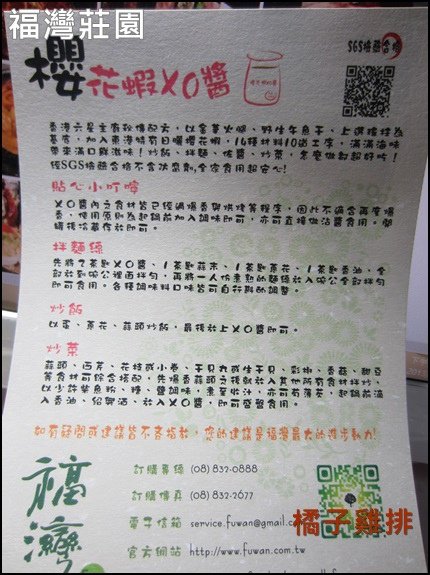 福灣莊園
櫻花蝦XO醬
SGS檢驗合格
香港六星主廚秘傳配方，以金華火腿、野生午魚干、上選瑤柱為
基底，加入東港特有日曬櫻花蝦，16種材料10道工序，滿滿海味
帶來滿口鮮滋味！炒飯、拌麵、佐醬、炒菜，怎麼做都超好吃！
經SGS檢驗合格不含防腐劑，全家食用超安心！
貼心小叮嚀
XO醬內之食材皆已經過爆香與烘烤等程序，因此不適合再度爆
香，使用原則為起鍋前加入調味即可，亦可直接做沾醬食用。開
罐後冷藏存放即可。
拌麵線
先將2茶匙XO醬、1茶匙蒜末、1茶匙蔥花、1茶匙香油，全
部放到碗公裡面拌勻，再將一人份煮熟的麵線放入碗公全部拌勻
即可食用。各種調味料口味皆可自行斟酌調整。
炒飯
以蛋、蔥花、蒜頭炒飯，最後放上XO醬即可。
炒菜
蒜頭、西芹、花枝或小卷、干貝丸或生干貝、彩椒、香菇、甜豆
等食材可綜合搭配，先爆香蒜頭之後就放入其他所有食材拌炒，
以少許鮮魚粉、糖、鹽調味，煮至收汁，亦可有薄芡，起鍋前滴
入香油、紹興酒，放入XO醬，即可盛盤食用。
如有疑問或建議皆不吝指教，您的建議是福灣最大的進步動力！
訂購專線 (08) 832-0888
訂購傳真 (08) 832-2677
電子信箱 service.fuwan@gmail.c
官方網站 http://www.fuwan.com.tw
福灣
橘子雞排